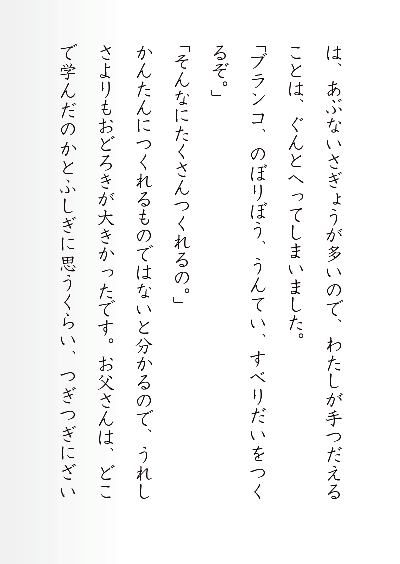 は、あぶないさぎょうが多いので、わたしが手つだえる
ことは、ぐんとへってしまいました。
「ブランコ、のぼりぼう、うんてい、すべりだいをつく
るぞ。」
「そんなにたくさんつくれるの。」
かんたんにつくれるものではないと分かるので、うれし
さよりもおどろきが大きかったです。お父さんは、どこ
で学んだのかとふしぎに思うくらい、つぎつぎにざい